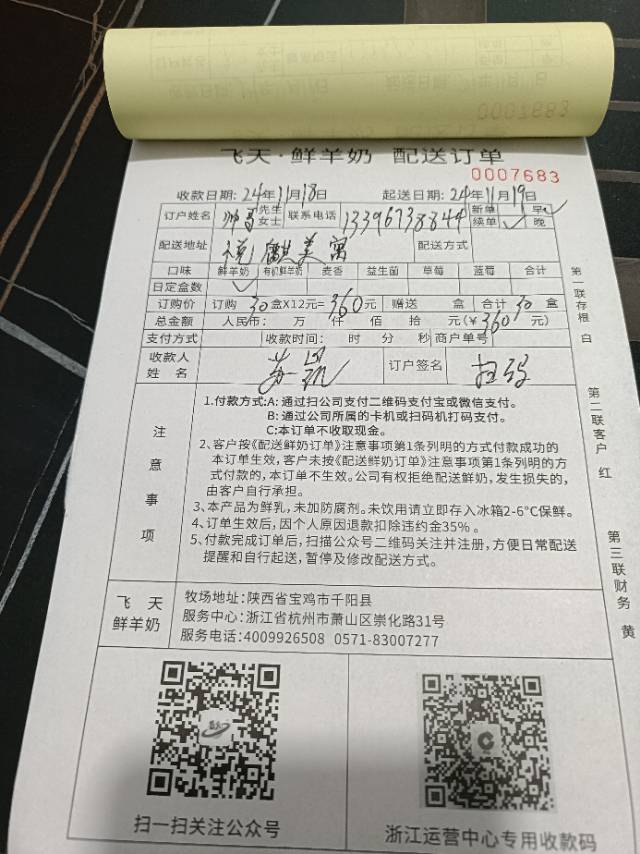 飞天·鲜羊奶 配送订单
0007683
收款日期: 24年11月18日 起送日期: 24年11月19日
订户姓名 帅哥 先生 女士 联系电话 13396738844 新单 早✓
续单✓ 晚
配送地址 祺麒美寓 配送方式
口味 鲜羊奶 有机鲜羊奶 麦香 益生菌 草莓 蓝莓 合计
日定盒数 ✓
订购价 订购 30 盒X12元= 360元 赠送 盒 合计 30 盒
总金额 人民币: 万 仟 佰 拾 元(¥ 360 元)
支付方式 收款时间: 时 分 秒 商户单号
收款人姓名 订户签名
注意事项
1.付款方式:A: 通过扫公司支付二维码支付宝或微信支付。
B: 通过公司所属的卡机或扫码机打码支付。
C:本订单不收取现金。
2、客户按《配送鲜奶订单》注意事项第1条列明的方式付款成功的
本订单生效，客户未按《配送鲜奶订单》注意事项第1条列明的方
式付款的，本订单不生效。公司有权拒绝配送鲜奶，发生损失的，
由客户自行承担。
3、本产品为鲜乳，未加防腐剂。未饮用请立即存入冰箱2-6°C保鲜。
4、订单生效后，因个人原因退款扣除违约金35% 。
5、付款完成订单后，扫描公众号二维码关注并注册，方便日常配送
提醒和自行起送，暂停及修改配送方式。
飞天
鲜羊奶
牧场地址: 陕西省宝鸡市千阳县
服务中心: 浙江省杭州市萧山区崇化路31号
服务电话: 4009926508 0571-83007277
扫一扫关注公众号
浙江运营中心专用收款码
第一联存根 白
第二联客户 红
第三联财务 黄